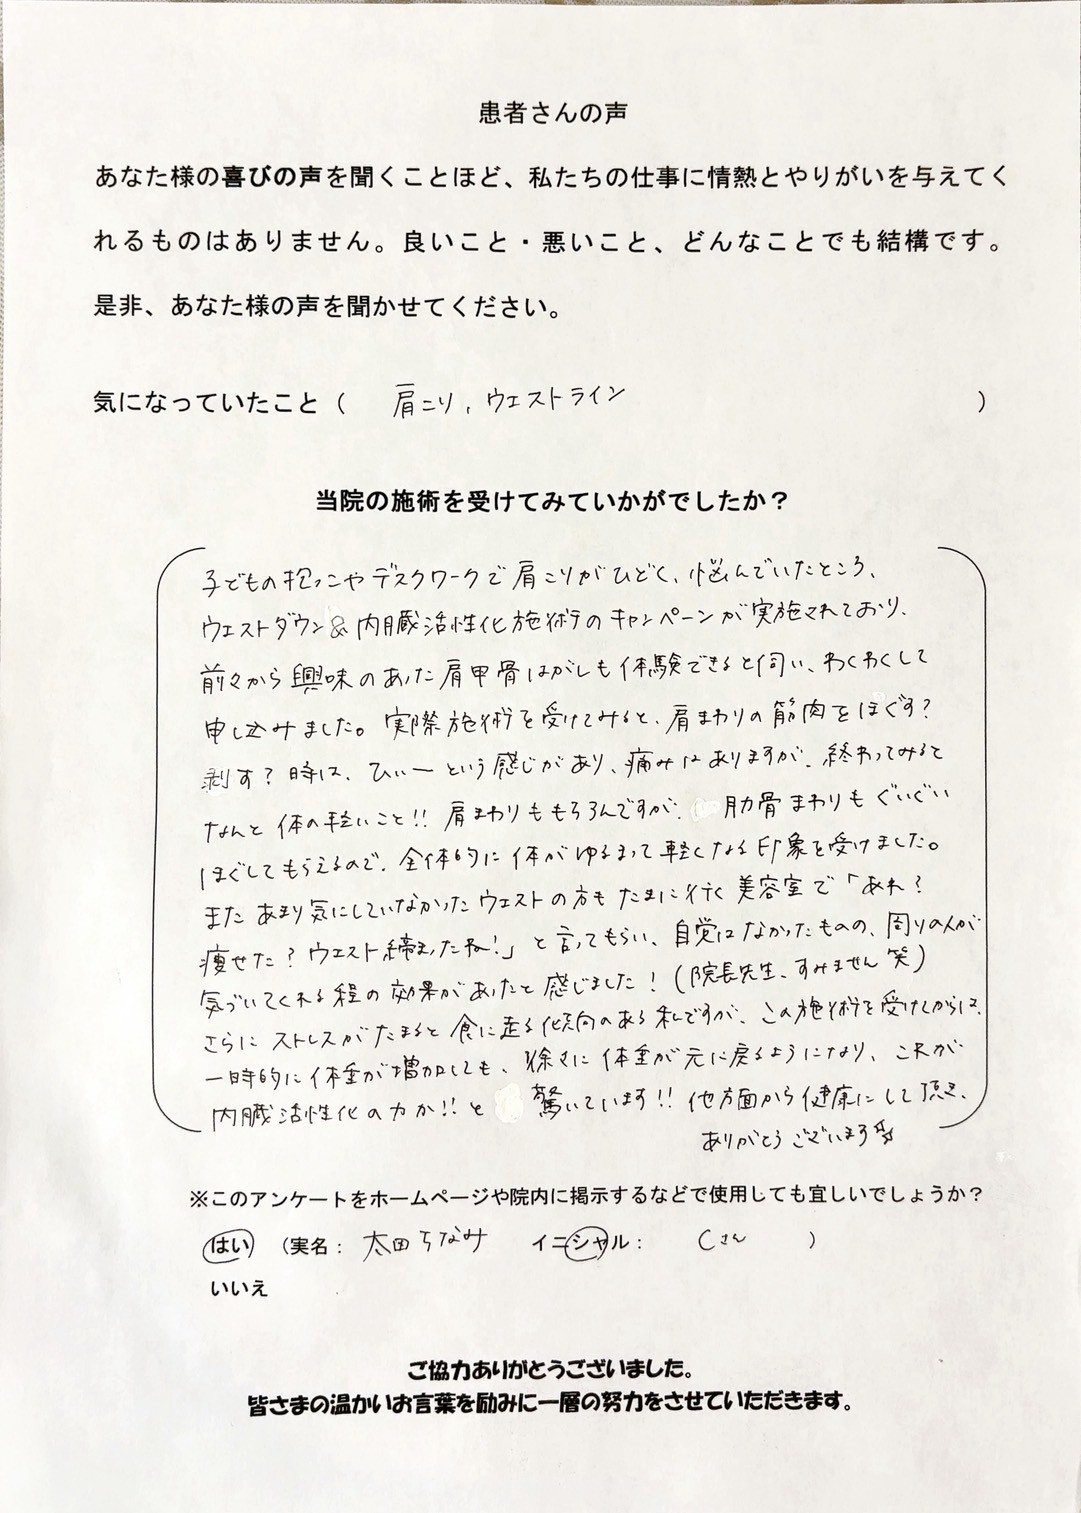 患者さんの声
あなた様の喜びの声を聞くことほど、私たちの仕事に情熱とやりがいを与えてく
れるものはありません。良いこと・悪いこと、どんなことでも結構です。
是非、あなた様の声を聞かせてください。
気になっていたこと（ 肩こり, ウエストライン ）
当院の施術を受けてみていかがでしたか？
子どもの抱っこやデスクワークで肩こりがひどく、悩んでいたところ、
ウエストダウン&内臓活性化施術のキャンペーンが実施されており、
前々から興味のあった肩甲骨はがしも体験できると伺い、わくわくして
申し込みました。実際施術を受けてみると、肩まわりの筋肉をほぐす？
剥す？時は、ひぃーという感じがあり、痛みはありますが、終わってみると
なんと体の軽いこと!! 肩まわりももちろんですが、肋骨まわりもぐいぐい
ほぐしてもらえるので、全体的に体がゆるまって軽くなる印象を受けました。
またあまり気にしていなかったウエストの方もたまに行く美容室で「あれ？
痩せた？ウエスト締まったね!」と言ってもらい、自覚はなかったものの、周りの人が
気づいてくれる程の効果があったと感じました！(院長先生、すみません笑)
さらにストレスがたまると食に走る傾向のある私ですが、この施術を受けてからは、
一時的に体重が増加しても、徐々に体重が元に戻るようになり、これが
内臓活性化の力か!!と驚いています!! 他方面から健康にして頂き、
ありがとうございます☆
※このアンケートをホームページや院内に掲示するなどで使用しても宜しいでしょうか？
はい （実名： 太田ちなみ イニシャル： Cさん ）
いいえ
ご協力ありがとうございました。
皆さまの温かいお言葉を励みに一層の努力をさせていただきます。